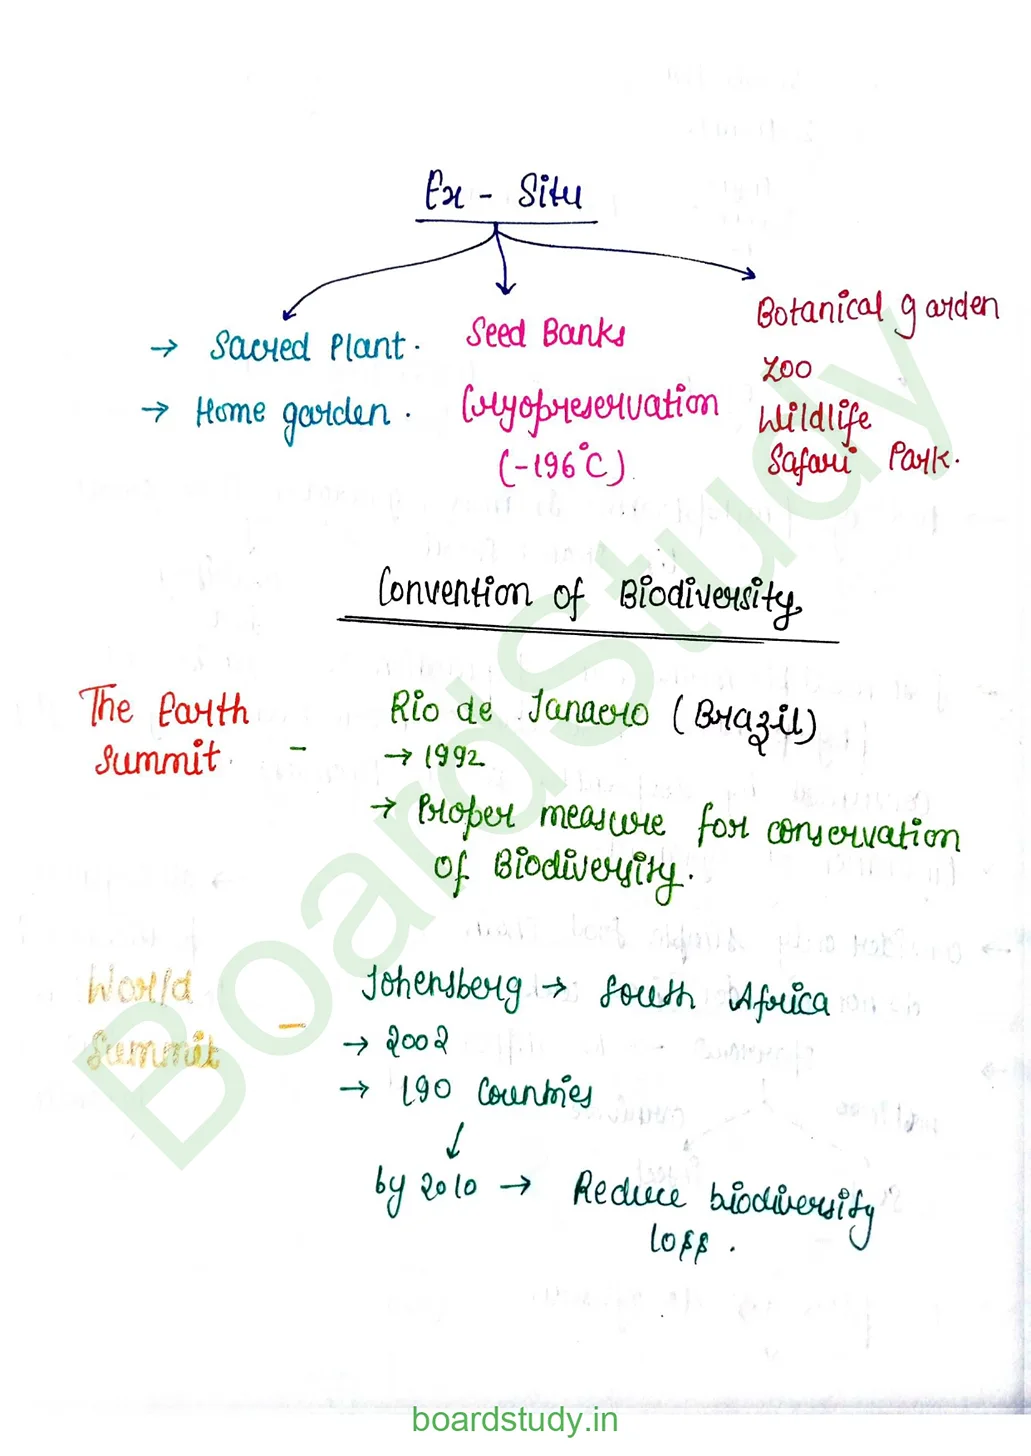 Ex - Situ
→ Sacred Plant.
→ Home garden.
Seed Banks
Cryopreservation
(-196°C).
Botanical garden
Zoo
Wildlife
Safari Park.
Convention of Biodiversity
The Earth
Summit. -
Rio de Janaero (Brazil)
→ 1992
→ Proper measure for conservation
of Biodiversity.
World
Summit -
Johensberg → South Africa
→ 2002
→ 190 Countries
↓
by 2010 → Reduce biodiversity
loss.
BoardStudy
boardstudy.in